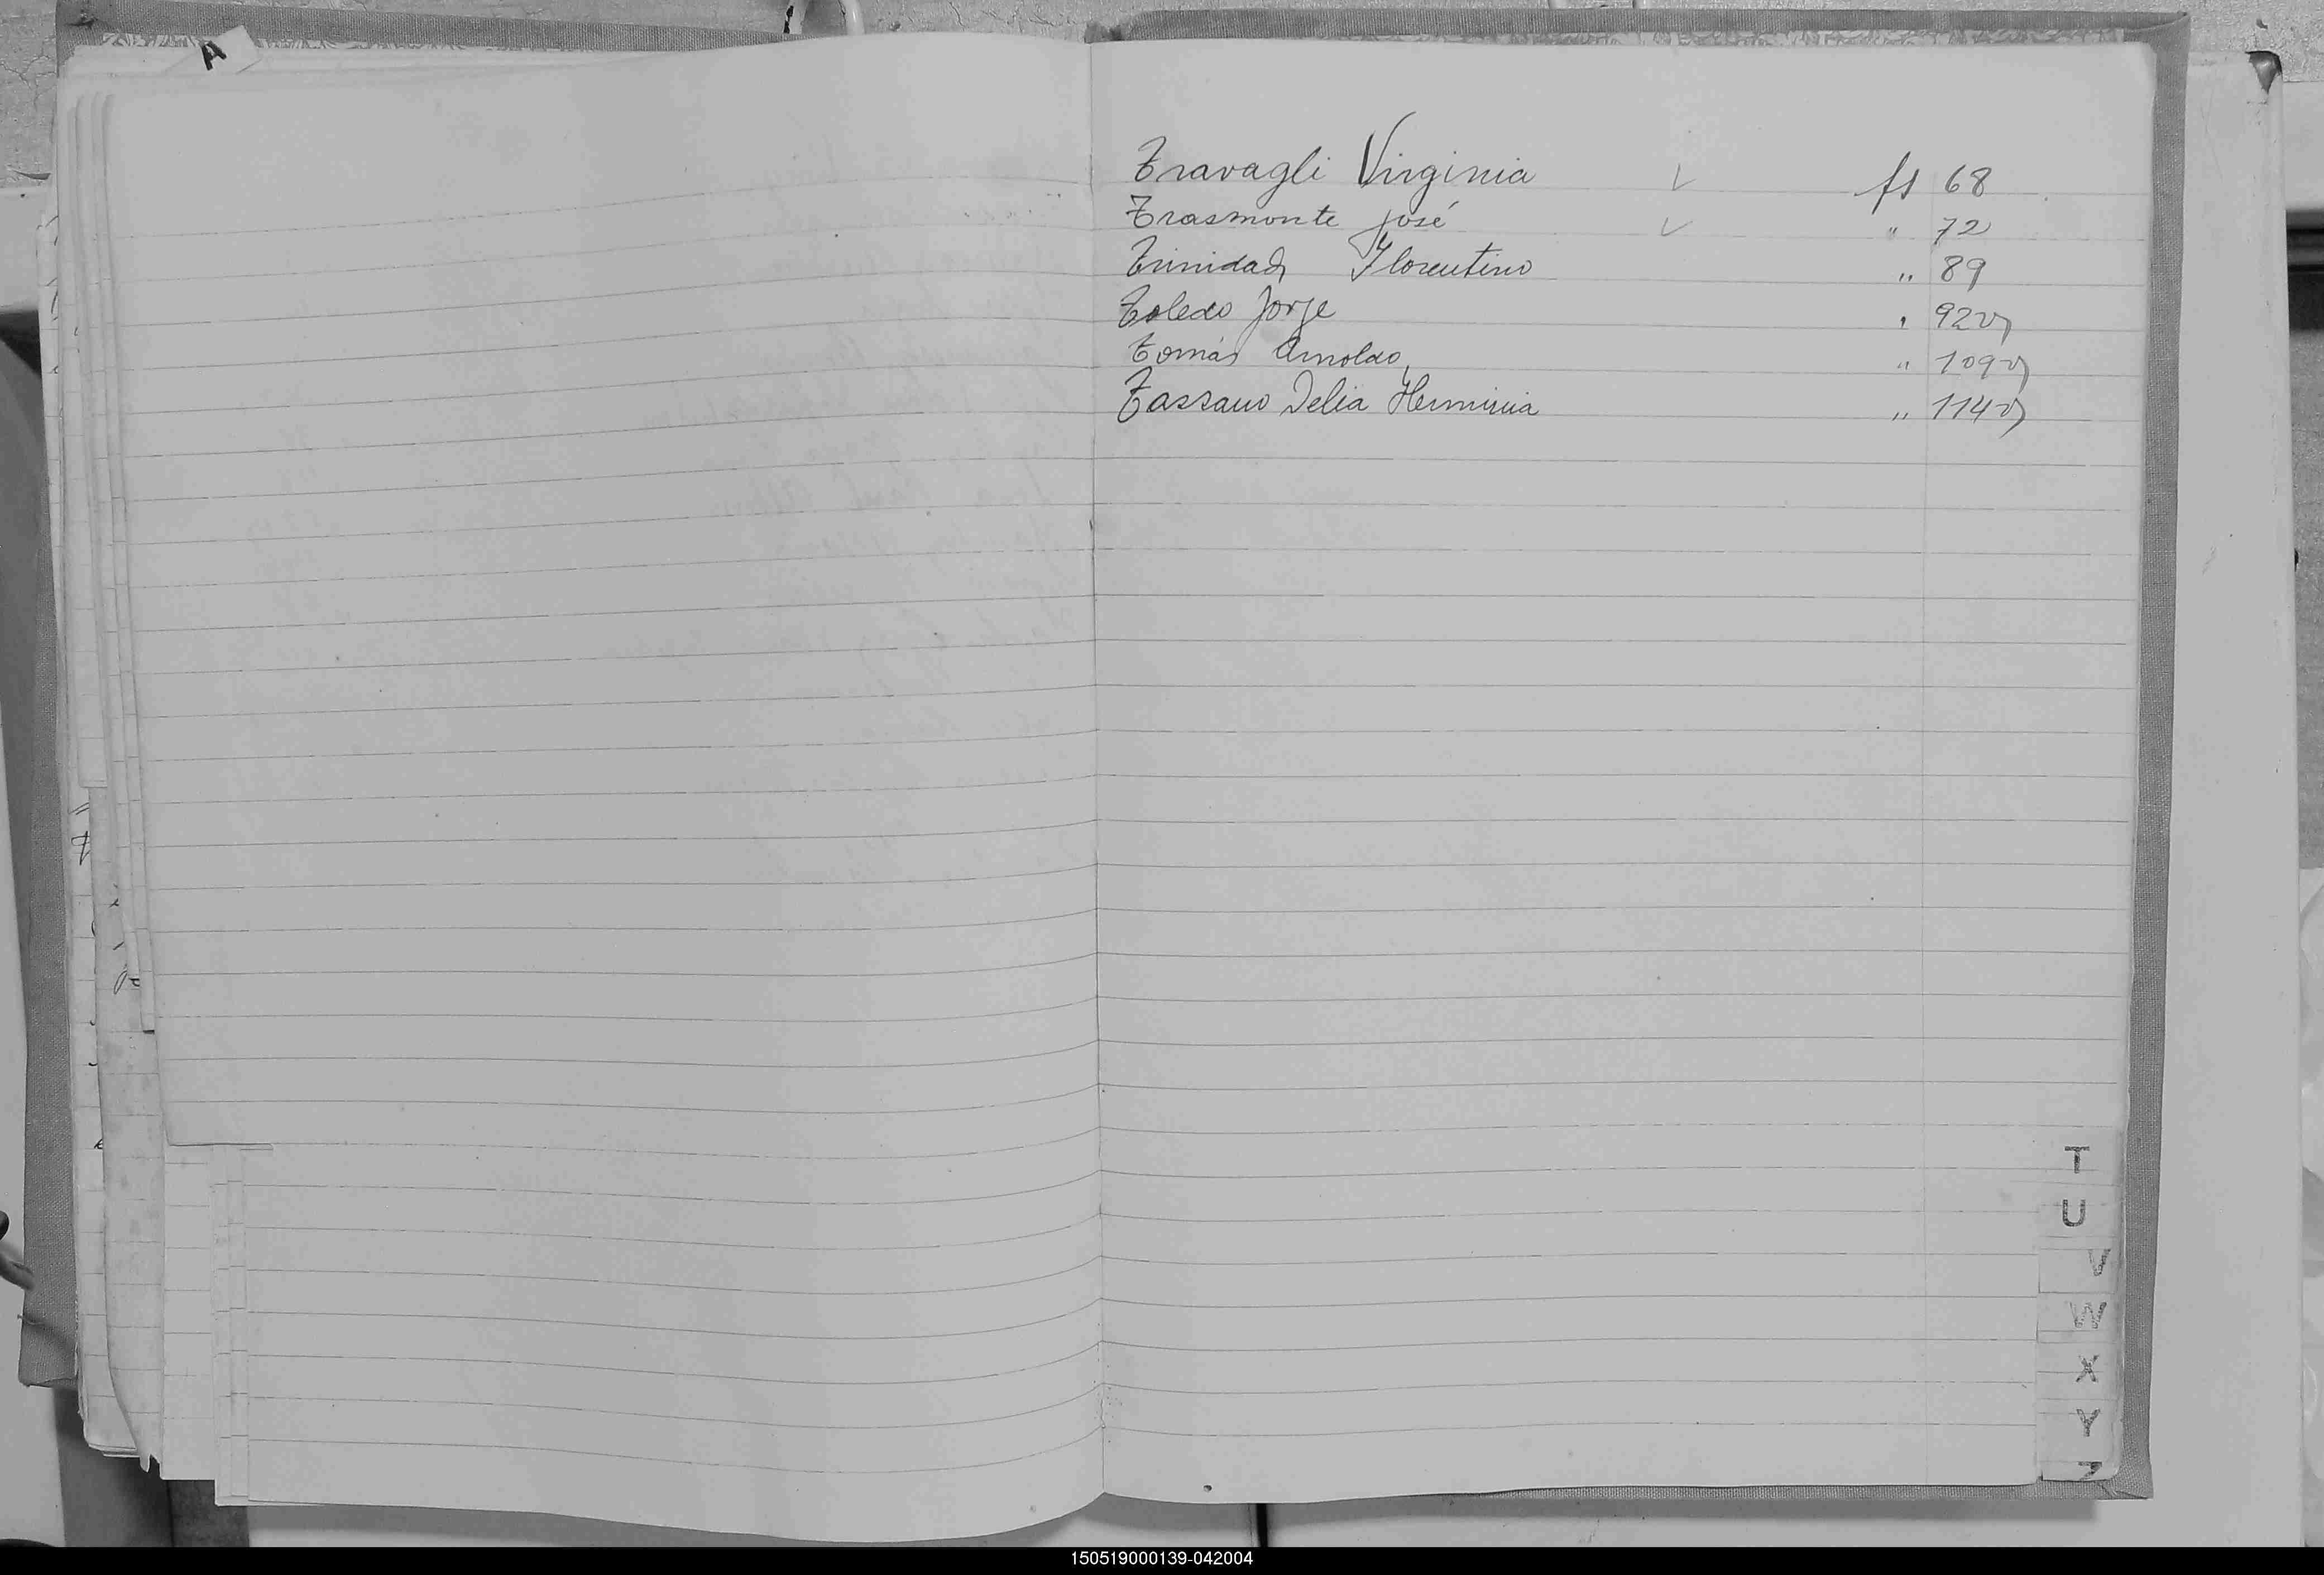 A
Travagli Virginia ✓ fs 68
Trasmonte José ✓ " 72
Trinidad, Florentino " 89
Toledo Jorge " 92v
Tomás Arnoldo, " 109v
Tassano Delia Herminia " 114v
T
U
V
W
X
Y
Z
150519000139-042004